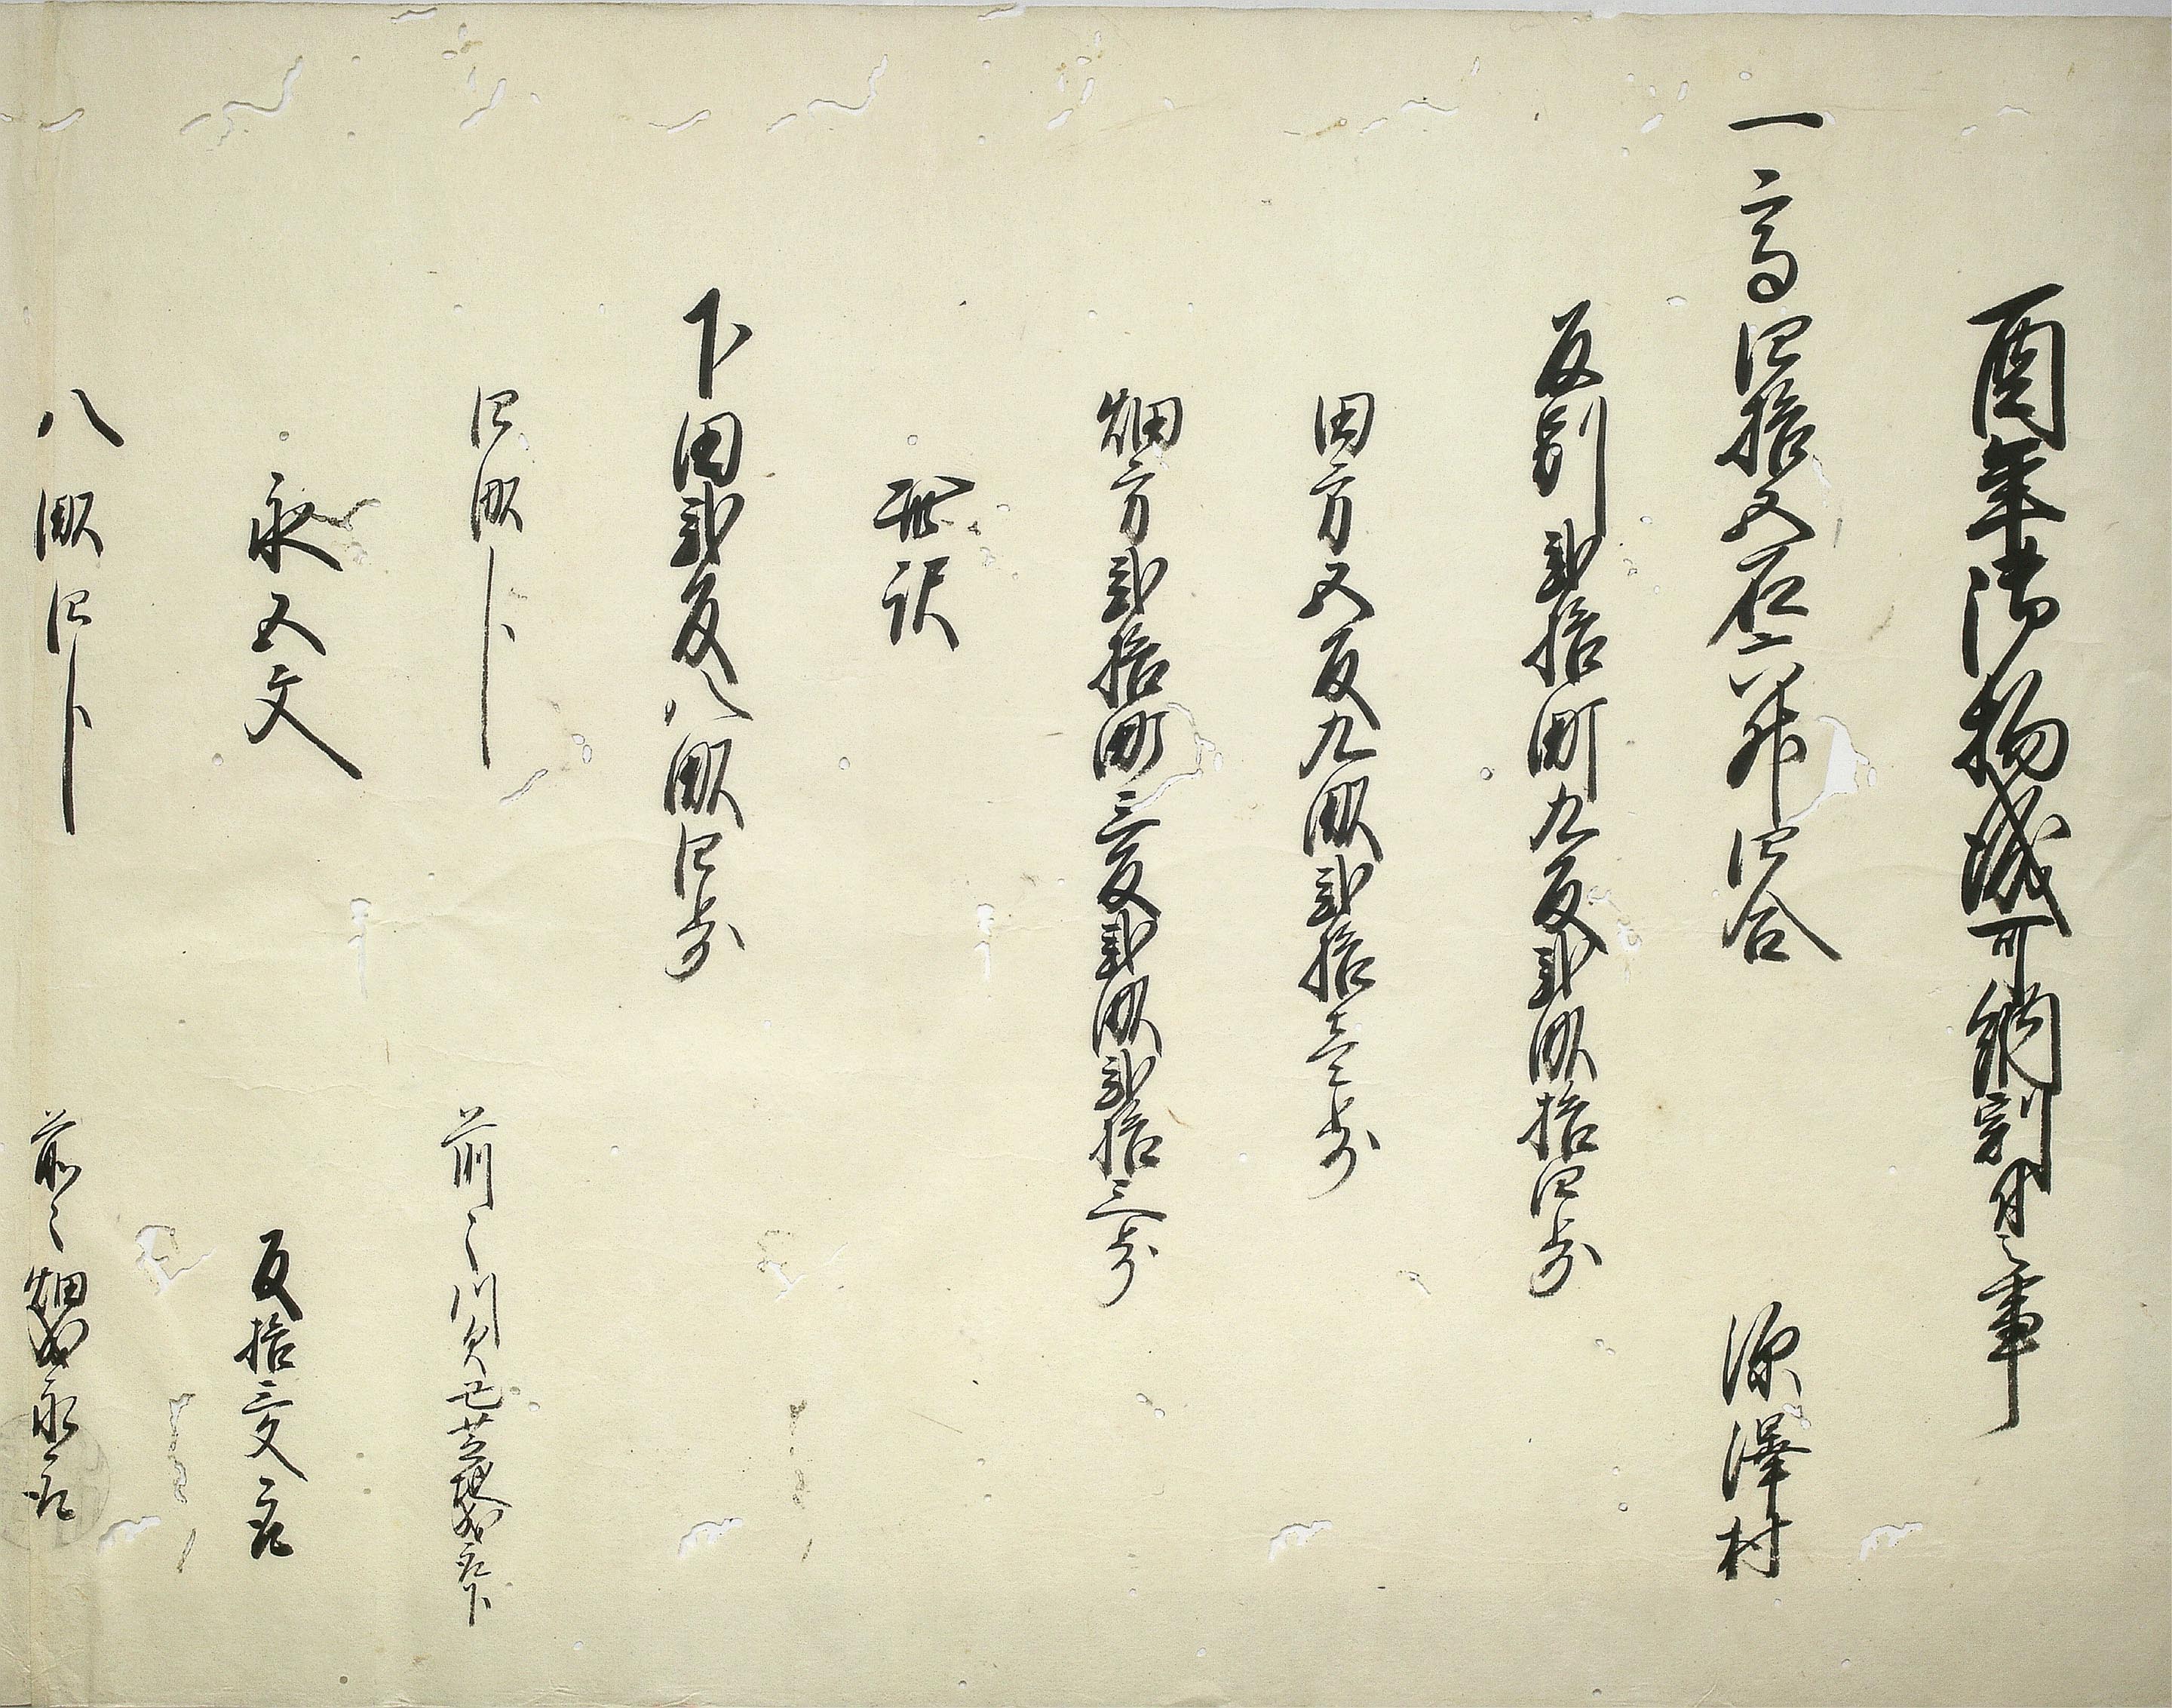 酉年御物成可納割付之事
一高四拾五石六升四合 源澤村
反別弐拾町九反弐畝拾四歩
田方五反九畝弐拾壱歩
畑方弐拾町三反弐畝弐拾三歩
此訳
下田弐反八畝四歩
四畝卜 前々川欠芝地成引
永五文 反拾三文取
八畝四卜 前々畑成永取